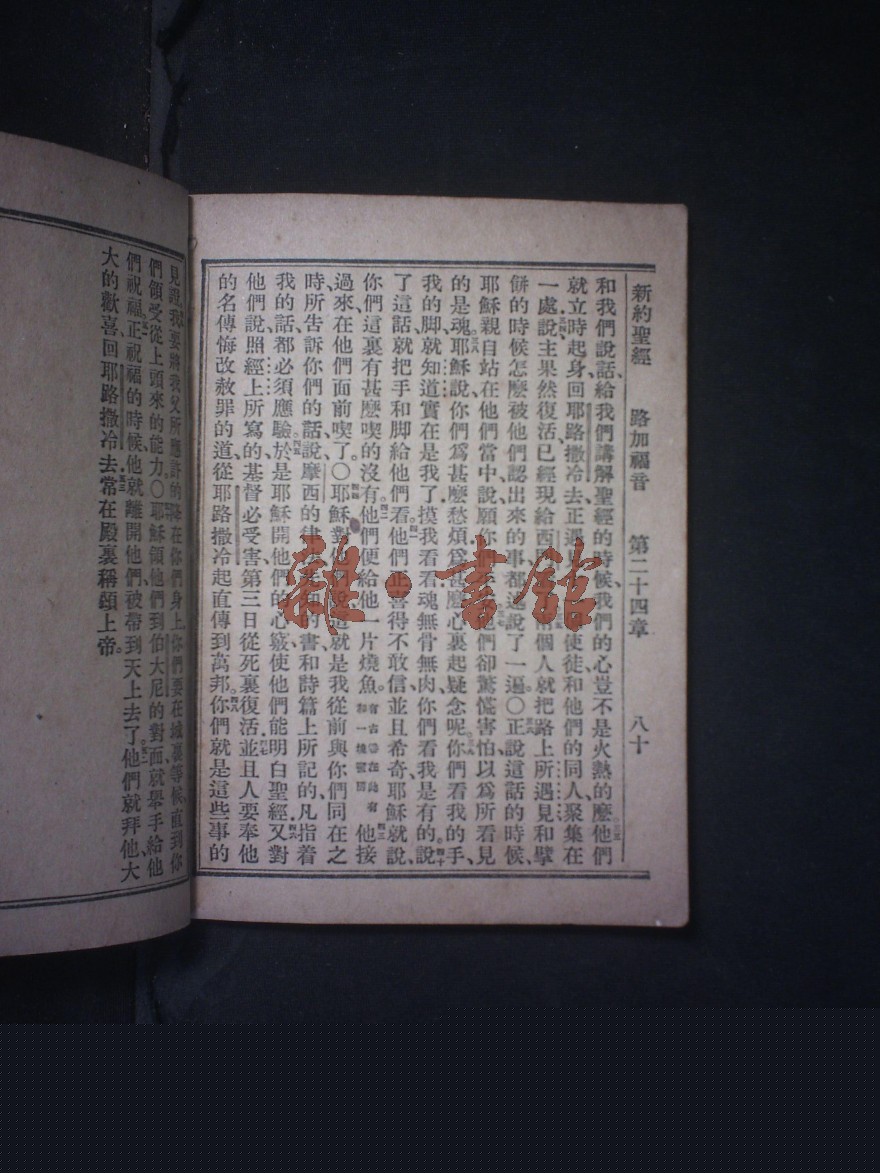 新約聖經 路加福音 第二十四章 八十
和我們說話、給我們講解聖經的時候、我們的心豈不是火熱的麼他們
就立時起身、回耶路撒冷去、正遇見 使徒和他們的同人、聚集在
一處說主果然復活已經現給西 個人就把路上所遇見和擘
餅的時候怎麼被他們認出來的事都述說了一遍○正說這話的時候、
耶穌親自站在他們當中說、願你 們卻驚慌害怕以爲所看見
的是魂耶穌說你們爲甚麼愁煩爲甚麼心裏起疑念呢你們看我的手、
我的脚就知道實在是我了摸我看看魂無骨無肉你們看我是有的說
了這話就把手和脚給他們看他們正喜得不敢信並且希奇、耶穌就說、
你們這裏有甚麼喫的沒有他們便給他一片燒魚 他接
過來、在他們面前喫了。○耶穌對他們說這就是我從前與你們同在之
時、所告訴你們的話說摩西的律 的書和詩篇上所記的凡指着
我的話都必須應驗於是耶穌開他們的心竅使他們能明白聖經又對
他們說照經上所寫的基督必受害第三日從死裏復活並且人要奉他
的名傳悔改赦罪的道從耶路撒冷起直傳到萬邦你們就是這些事的
見證我要將我父所應許的降在你們身上你們要在城裏等候直到你
們領受從上頭來的能力○耶穌領他們到伯大尼的對面就舉手給他
們祝福正祝福的時候他就離開他們被帶到天上去了他們就拜他大
大的歡喜回耶路撒冷去常在殿裏稱頌上帝。
雜·書館